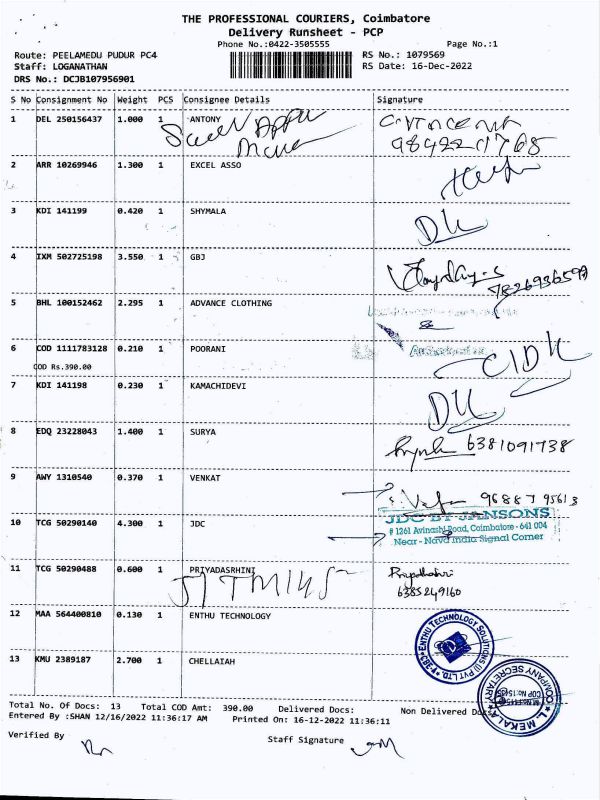 THE PROFESSIONAL COURIERS, Coimbatore
Delivery Runsheet - PCP
Phone No.:0422-3505555 Page No.:1
Route: PEELAMEDU PUDUR PC4 RS No.: 1079569
Staff: LOGANATHAN RS Date: 16-Dec-2022
DRS No.: DCJB107956901
S No Consignment No Weight PCS Consignee Details Signature
1 DEL 250156437 1.000 1 ANTONY
2 ARR 10269946 1.300 1 EXCEL ASSO
3 KDI 141199 0.420 1 SHYMALA
DK
4 IXM 502725198 3.550 1 GBJ
5 BHL 100152462 2.295 1 ADVANCE CLOTHING
6 COD 1111783128 0.210 1 POORANI
COD Rs.390.00
7 KDI 141198 0.230 1 KAMACHIDEVI
DK
8 EDQ 23228043 1.400 1 SURYA
6381091738
9 AWY 1310540 0.370 1 VENKAT
96887 95613
10 TCG 50290140 4.300 1 JDC
JDC BY JANSONS
# 1261 Avinashi Road, Coimbatore - 641 004
Near - Nava India Signal Corner
11 TCG 50290488 0.600 1 PRIYADASRHINI
6385249160
12 MAA 564400810 0.130 1 ENTHU TECHNOLOGY
ENTHU TECHNOLOGY SOLUTIONS (I) PVT LTD.
13 KMU 2389187 2.700 1 CHELLAIAH
L. MEKALA
COMPANY SECRETARY
Total No. Of Docs: 13 Total COD Amt: 390.00 Delivered Docs: Non Delivered Docs
Entered By :SHAN 12/16/2022 11:36:17 AM Printed On: 16-12-2022 11:36:11
Verified By Staff Signature